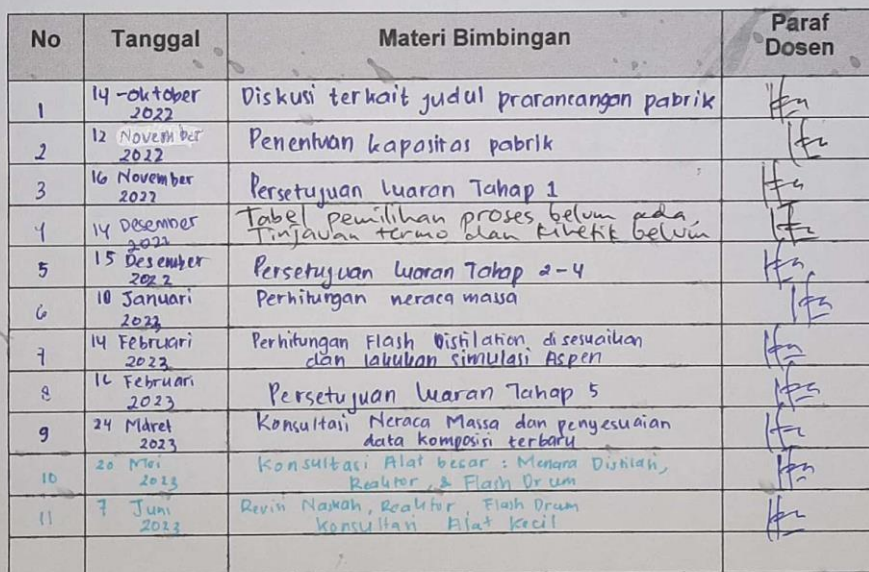 No Tanggal Materi Bimbingan Paraf Dosen
1 14 - Oktober 2022 Diskusi terkait judul prarancangan pabrik
2 12 November 2022 Penentuan kapasitas pabrik
3 16 November 2022 Persetujuan luaran Tahap 1
4 14 Desember 2022 Tabel pemilihan proses belum ada, Tinjauan termo dan kinetik belum
5 15 Desember 2022 Persetujuan luaran Tahap 2-4
6 10 Januari 2023 Perhitungan neraca massa
7 14 Februari 2023 Perhitungan Flash Distilation disesuaikan dan lakukan simulasi Aspen
8 16 Februari 2023 Persetujuan luaran Tahap 5
9 24 Maret 2023 Konsultasi Neraca Massa dan penyesuaian data komposisi terbaru
10 20 Mei 2023 Konsultasi Alat besar : Menara Distilasi, Reaktor, & Flash Drum
11 7 Juni 2023 Revisi Naskah, Reaktor, Flash Drum Konsultasi Alat Kecil